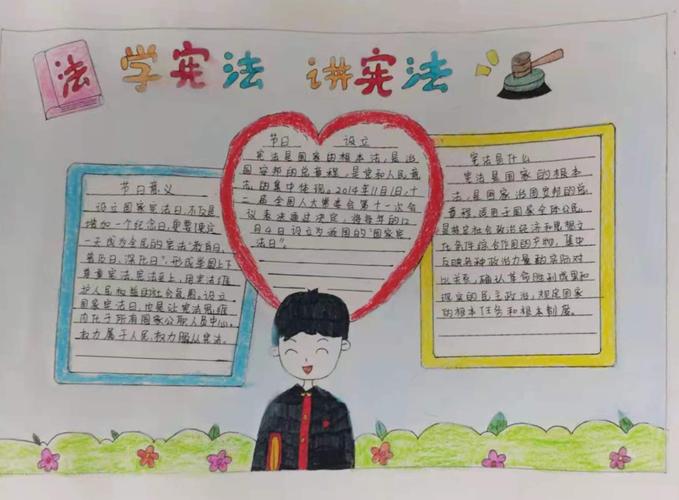 法
学宪法 讲宪法
节日意义
设立国家宪法日,不仅是
增加一个纪念日,更要使这
一天成为全民的宪法"教育日、
普及日、深化日",形成举国上下
尊重宪法、宪法至上、用宪法维
护人民权益的社会氛围。设立
国家宪法日,也是让宪法思维
内化于所有国家公职人员中心。
权力属于人民,权力服从宪法。
节日 设立
宪法是国家的根本法,是治
国安邦的总章程,是党和人民意
志的集中体现。2014年11月1日,十
二届全国人大常委会第十一次会
议表决通过决定,将每年的12
月4日设立为我国的"国家宪
法日"。
宪法是什么
宪法是国家的根本
法,是国家治国安邦的总
章程,适用于国家全体公民,
是特定社会政治经济和思想文
化条件综合作用的产物,集中
反映各种政治力量的实际对
比关系,确认革命胜利成果和
现实的民主政治,规定国家
的根本任务和根本制度。